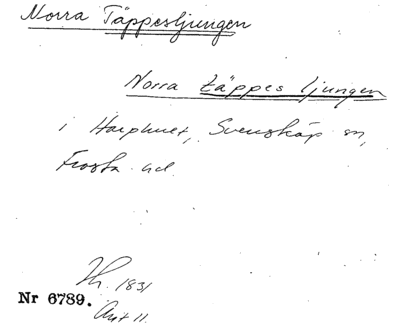 Norra Täppesljungen
Norra täppes ljungen
i Harphult, Svensköp sn,
Frosta hd.
Nr 6789.
1831
Akt 11.